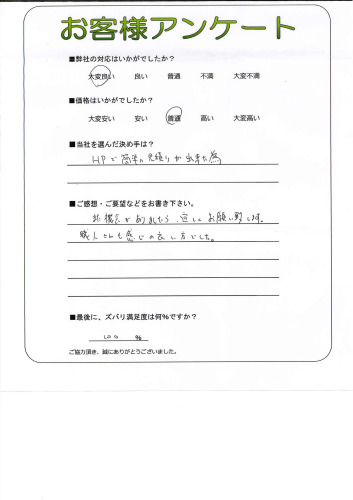 お客様アンケート
■弊社の対応はいかがでしたか？
大変良い 良い 普通 不満 大変不満
■価格はいかがでしたか？
大変安い 安い 普通 高い 大変高い
■当社を選んだ決め手は？
HPで簡単に見積りが出来た為
■ご感想・ご要望などをお書き下さい。
また機会がありましたら、宜しくお願い致します。
職人さんも感じの良い方でした。
■最後に、ズバリ満足度は何％ですか？
100 %
ご協力頂き、誠にありがとうございました。